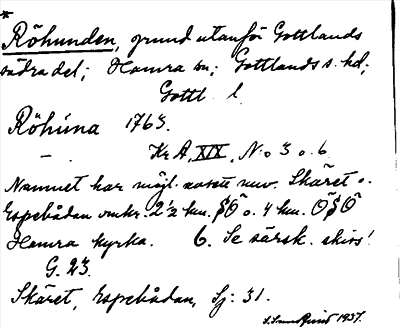 *
Röhunden, grund utanför Gottlands
södra del; Hamra sn; Gottlands s. hd;
Gottl. l.
Röhúna 1763.
— Kr. A, XIX, N:o 3 o. 6.
Namnet har möjl. avsett nuv. Skäret o.
Espebådan omkr. 2 ½ km. SO o. 4 km. OSO
Hamra kyrka. 6. Se särsk. skivs!
G. 23.
Skäret, Espebådan, Sj: 31.
1937.